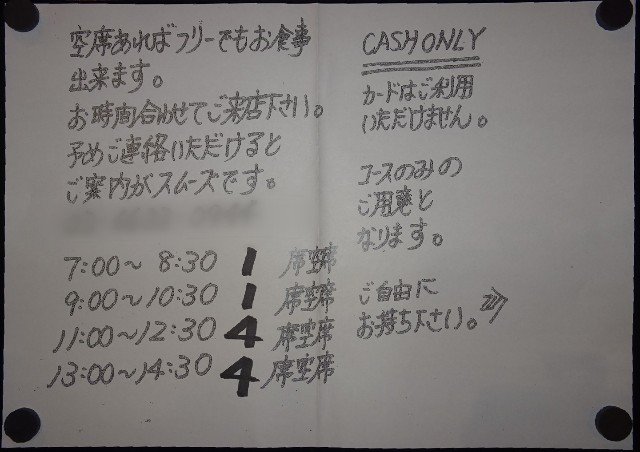 空席あればフリーでもお食事
出来ます。
お時間合わせてご来店下さい。
予めご連絡いただけると
ご案内がスムーズです。
7:00～8:30 1 席空席
9:00～10:30 1 席空席
11:00～12:30 4 席空席
13:00～14:30 4 席空席
CASH ONLY
カードはご利用
いただけません。
コースのみの
ご用意と
なります。
ご自由に
お持ち下さい。